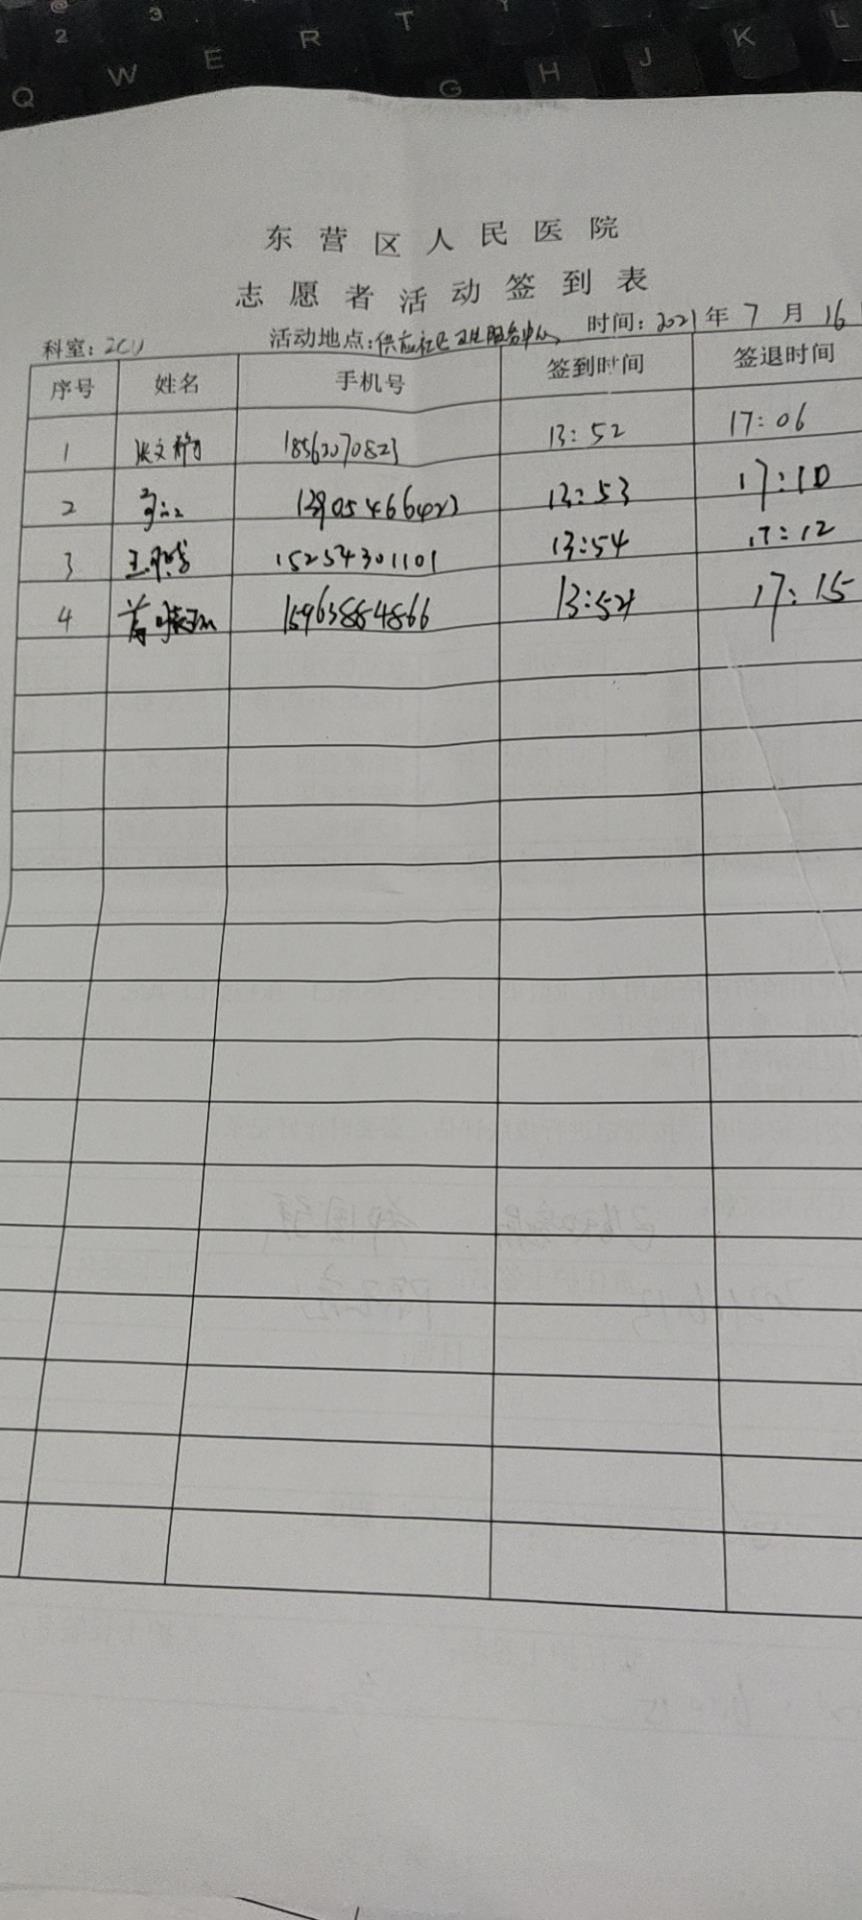 Q W E R T
G H J K L
2 3
东营区人民医院
志愿者活动签到表
科室: ICU 活动地点: 供应社区卫生服务中心 时间: 2021年7月16
序号 姓名 手机号 签到时间 签退时间
1 张文 18562070823 13:52 17:06
2 13:53 17:10
3 王 15254301101 13:54 17:12
4 15963884866 13:54 17:15